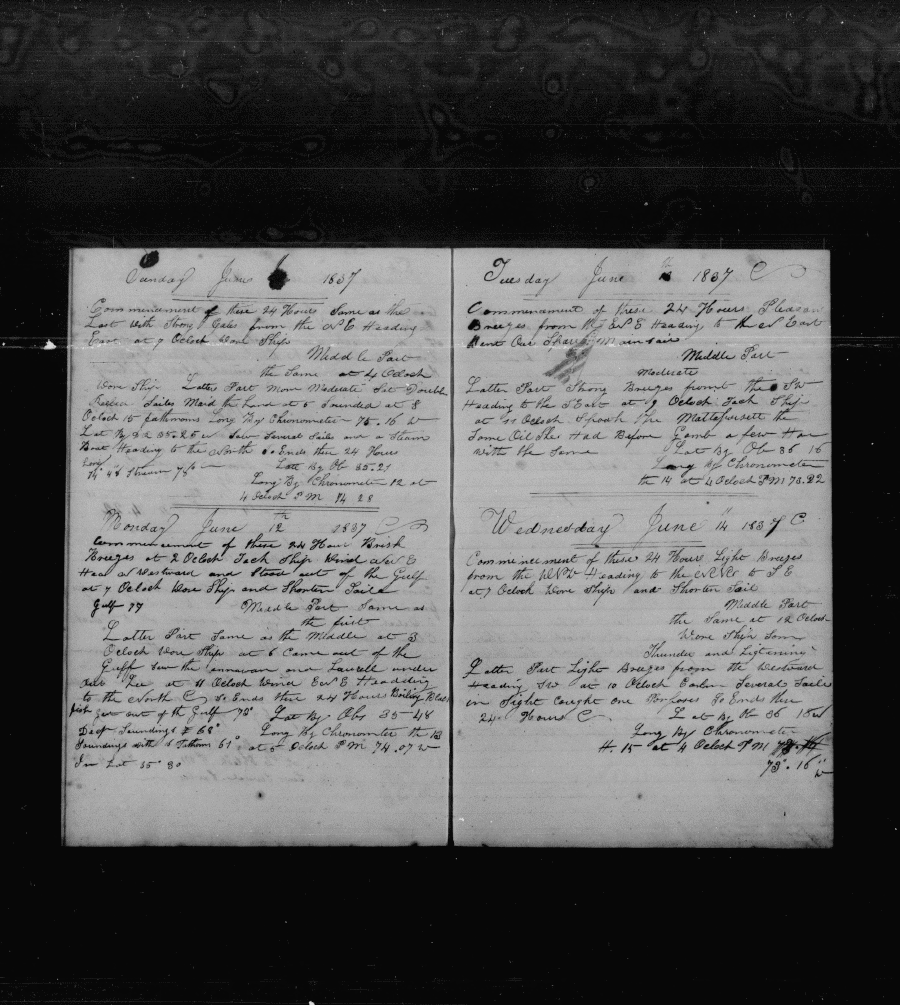 Sunday June 1837
Commencement of these 24 Hours Same as the
Last with Strong Gales from the N E Heading
East at 9 Oclock Wore Ship
Middle Part
the Same at 4 Oclock
Wore Ship Latter Part More Moderate Set Double
Reefen Sailes Maid the Land at 5 Sounded at 8
Oclock 15 fathoms Long By Chronometer 75.16 W
Lat By 35.25 Saw Several Sailes and a Steam
Boat Heading to the North So Ends these 24 Hours
Long
74° 48 Stream 78° Latt By Ob 35.21
Long By Chronometer 12 at
4 Oclock P M 74 28
Monday June 12th 1837
Commencement of these 24 Hour Brisk
Breezes at 2 Oclock Tack Ship Wind N E
Head N Westward and Stood out of the Gulf
at 7 Oclock Wore Ship and Shorten Saile
Gulf 77 Middle Part Same as
the first
Latter Part Same as the Middle at 3
Oclock Wore Ship at 6 Came out of the
Gulf Saw the and Laurell under
Our Lee at 11 Oclock Wind E N E Headding
to the North So Ends these 24 Hours Boiling Black
fish out of the Gulf 78° Lat By Obs 35-48
Deep Soundings 68° Long By Chronometer the 13
Soundings with Fathom 61° at 5 Oclock P.M. 74.07 W
In Lat 35° 30
Tuesday June th 1837
Commencement of these 24 Hours Pleasan
Breezes from the E N E Heading to the N East
Bent Our Spare Main Sail
Middle Part
Moderate
Latter Part Strong Breezes from the S W
Heading to the S East at 9 Oclock Tack Ship
at 11 Oclock Spoak The Mattapoisett the
Same Oil She Had Before Gamb a few Hour
with the Same Lat By Ob 36 16
Long By Chronometer
the 14 at 4 Oclock P M 73.22
Wednesday June 14 1837
Commencement of these 24 Hours Light Breezes
from the Heading to the to S E
at 7 Oclock Wore Ship and Shorten Sail
Middle Part
the Same at 12 Oclock
Wore Ship Some
Thunder and Ligtening
Latter Part Light Breezes from the Westward
Heading S W at 10 Oclock Several Saile
in Sight Caught one Porposes So Ends these
24 Hours Lat By Ob 36 18
Long By Chronometer
15 at 4 Oclock P M
73°.16" W